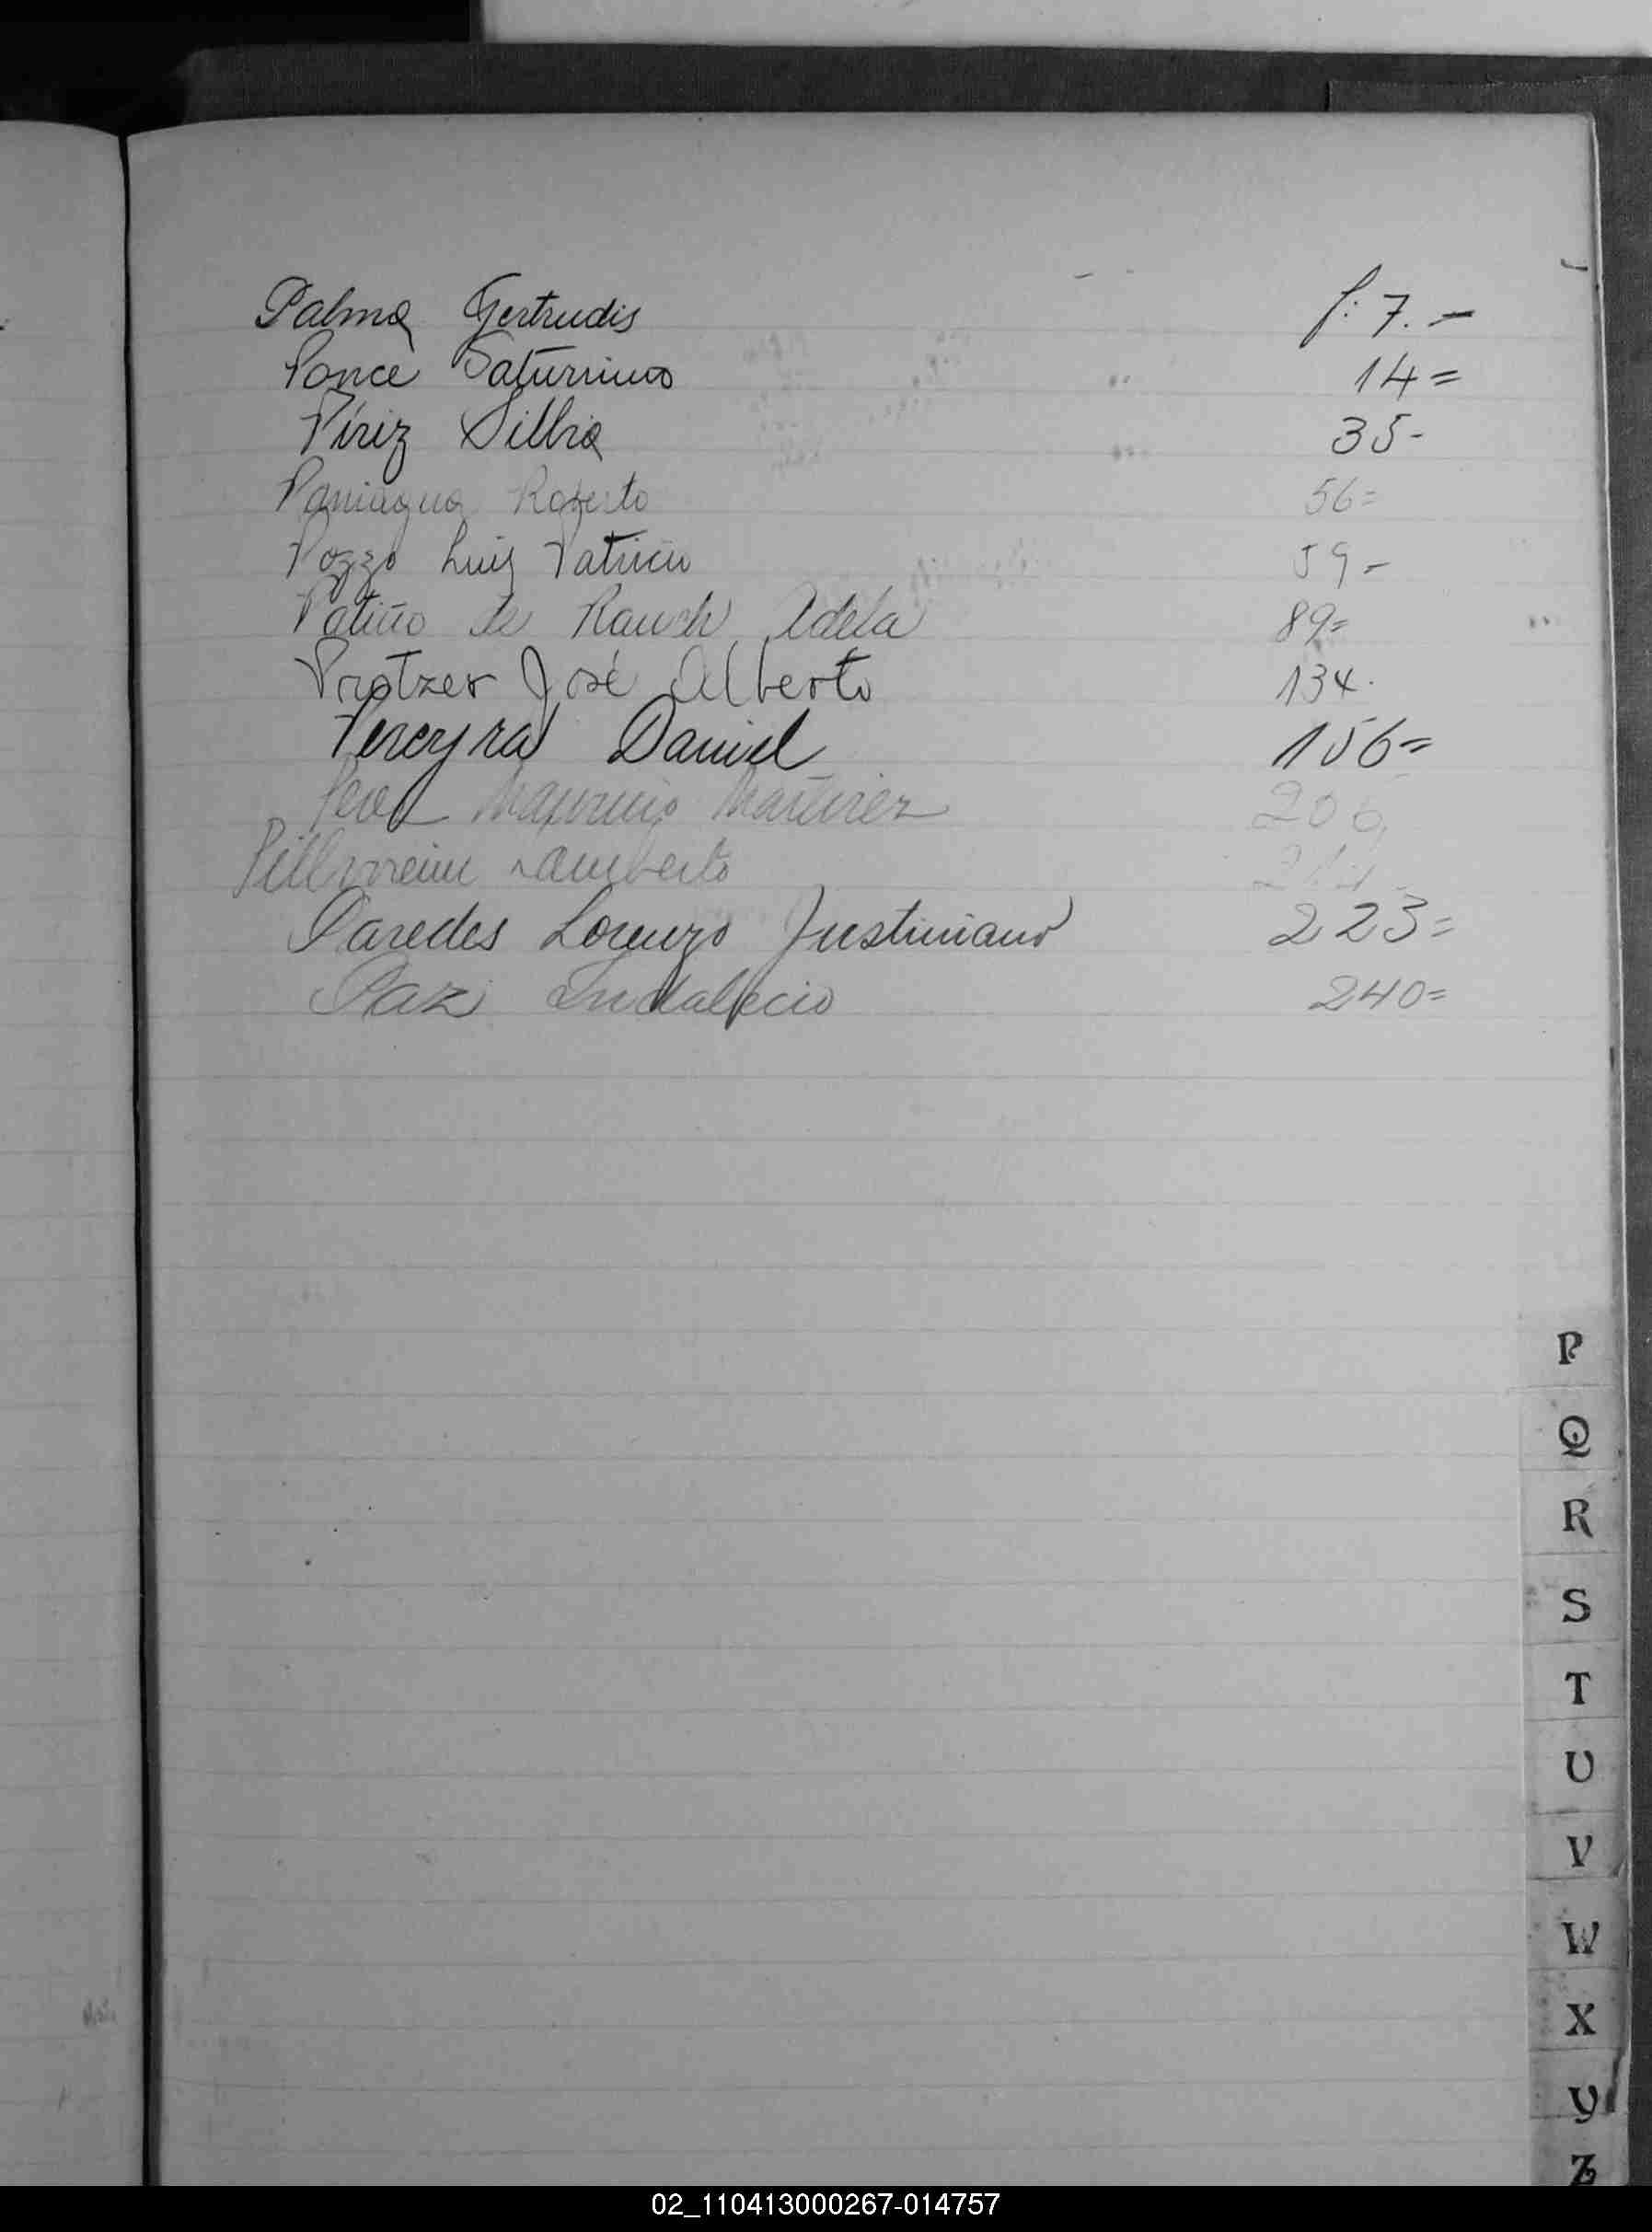 Palma Gertrudis f: 7.-
Ponce Saturnino 14=
Píriz Silbia 35-
Paniagua Roberto 56=
Pozzo Luis Patricio 59-
Patiño de Rauch Adela 89=
Protzer José Alberto 134.
Pereyra Daniel 156=
Martinez 206
Lamberto
Paredes Lorenzo Justiniano 223=
Paz Indalecio 240=
P
Q
R
S
T
U
V
W
X
Y
Z
02_110413000267-014757